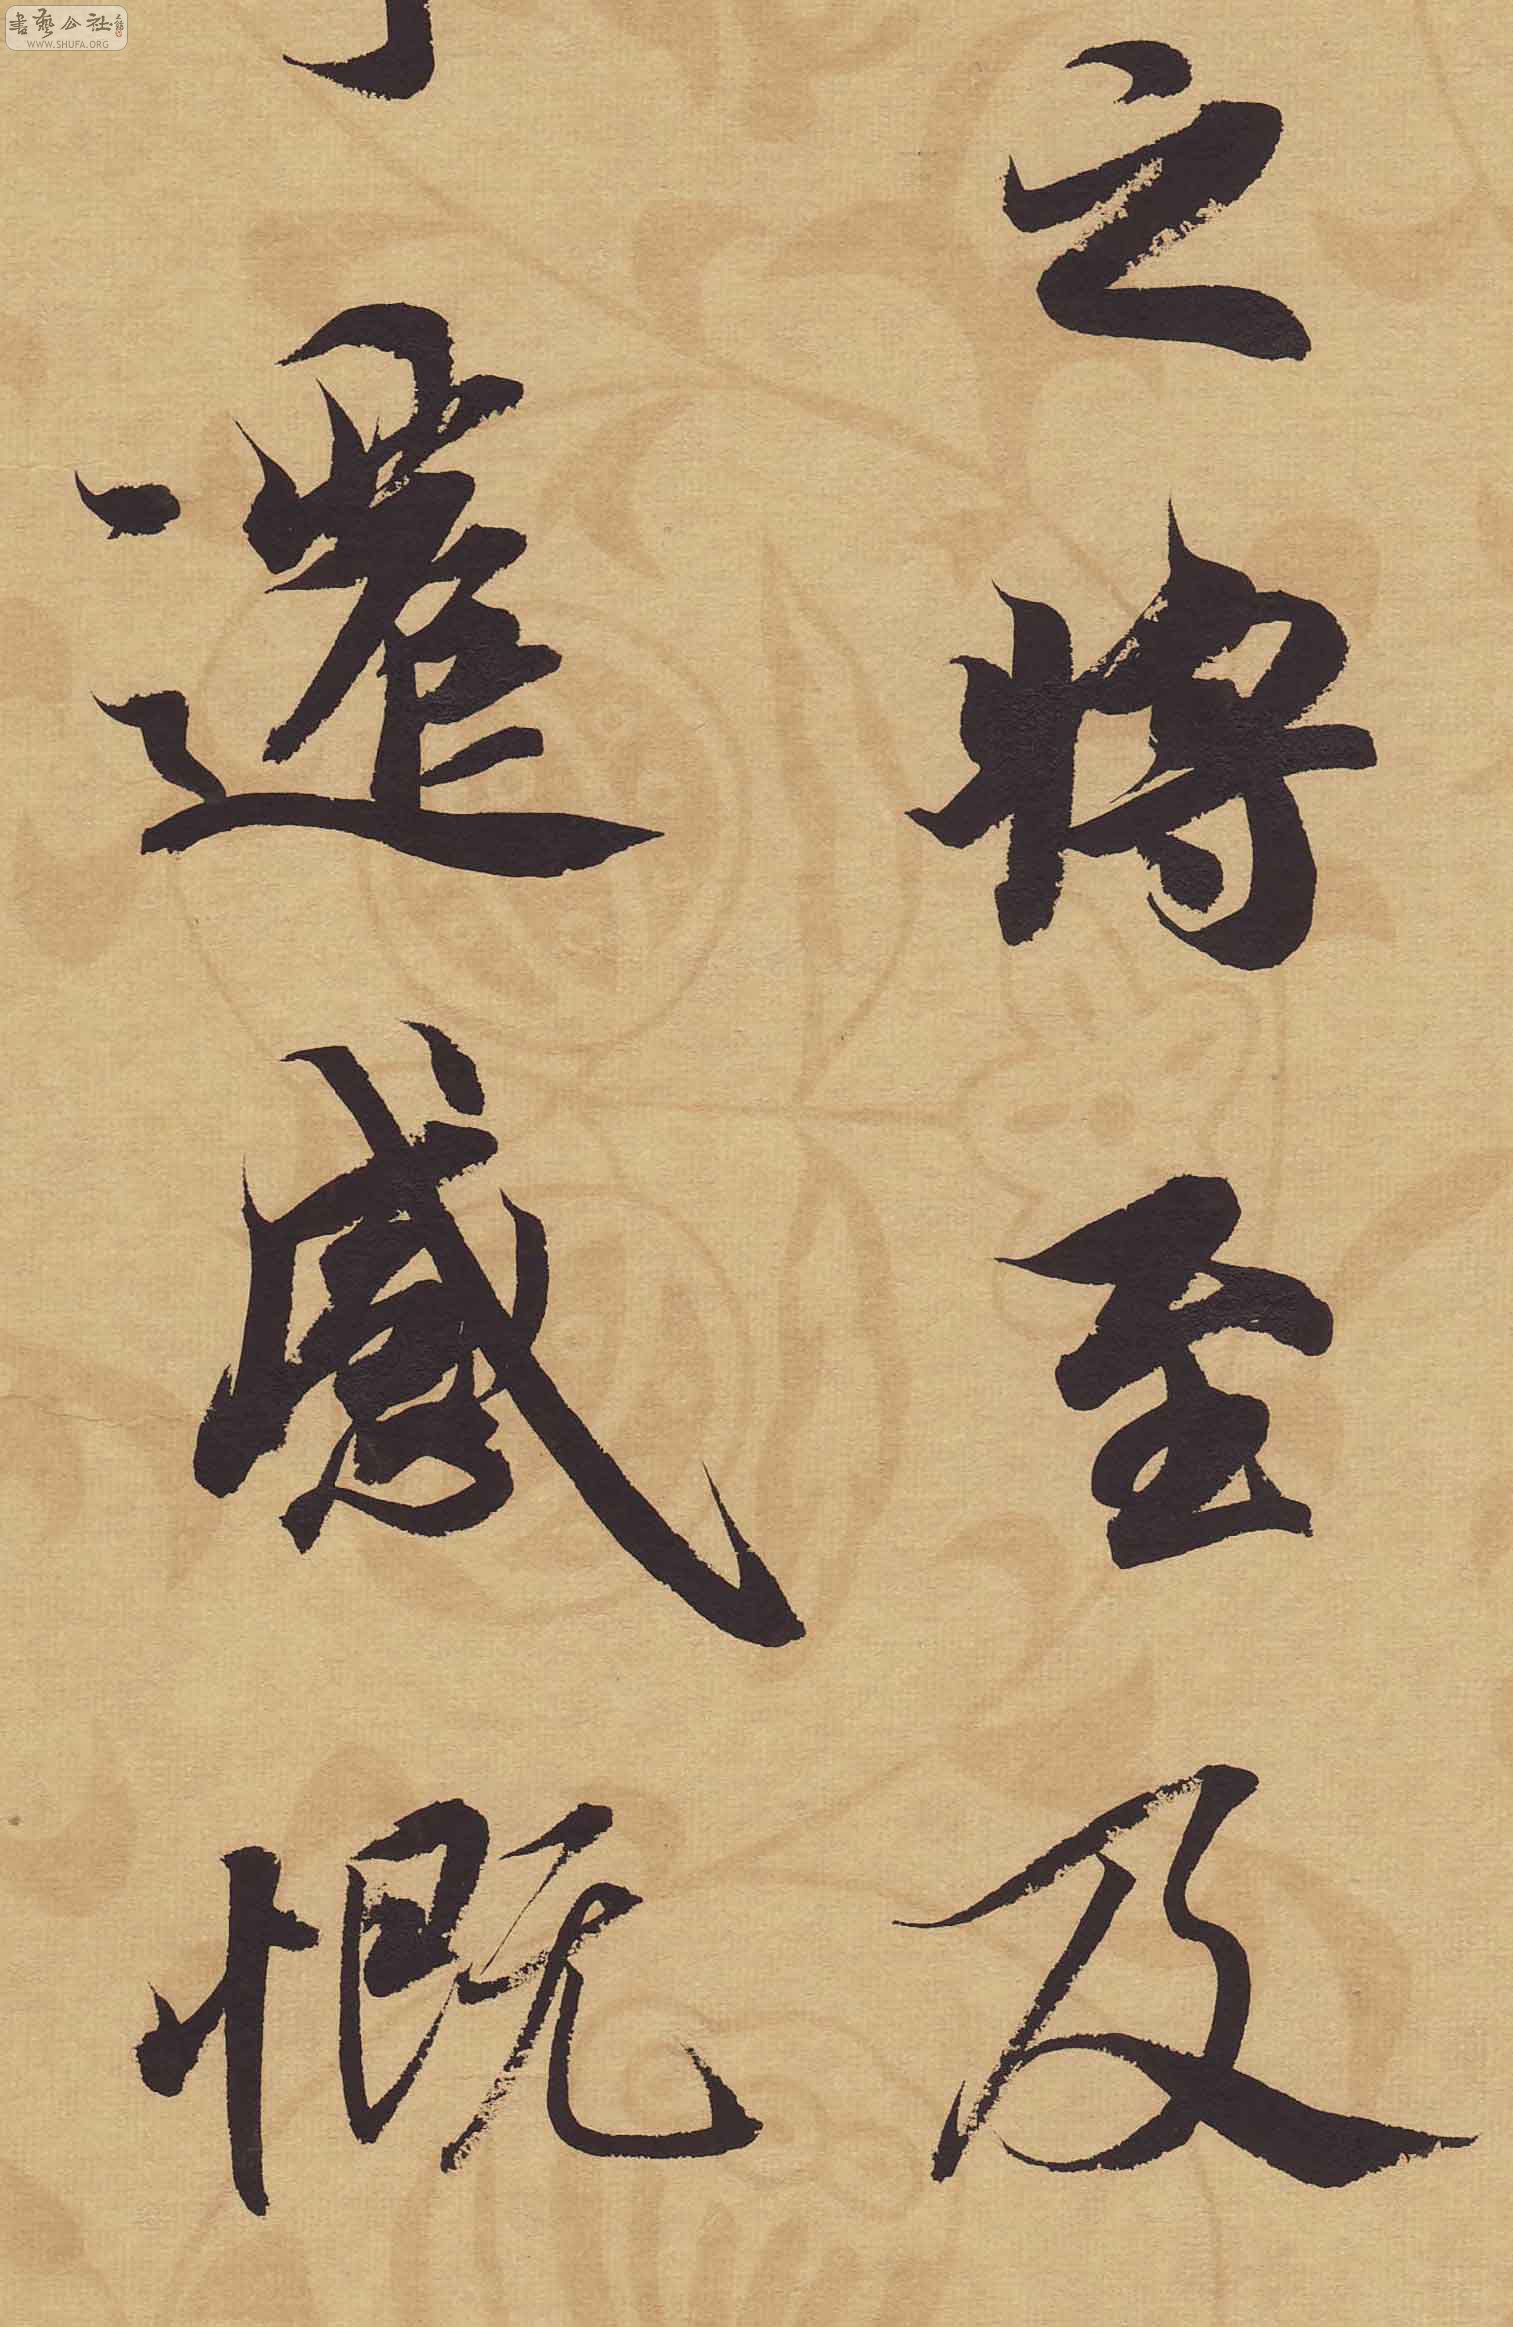 之將至及
遷感慨
書藝公社
WWW.SHUFA.ORG